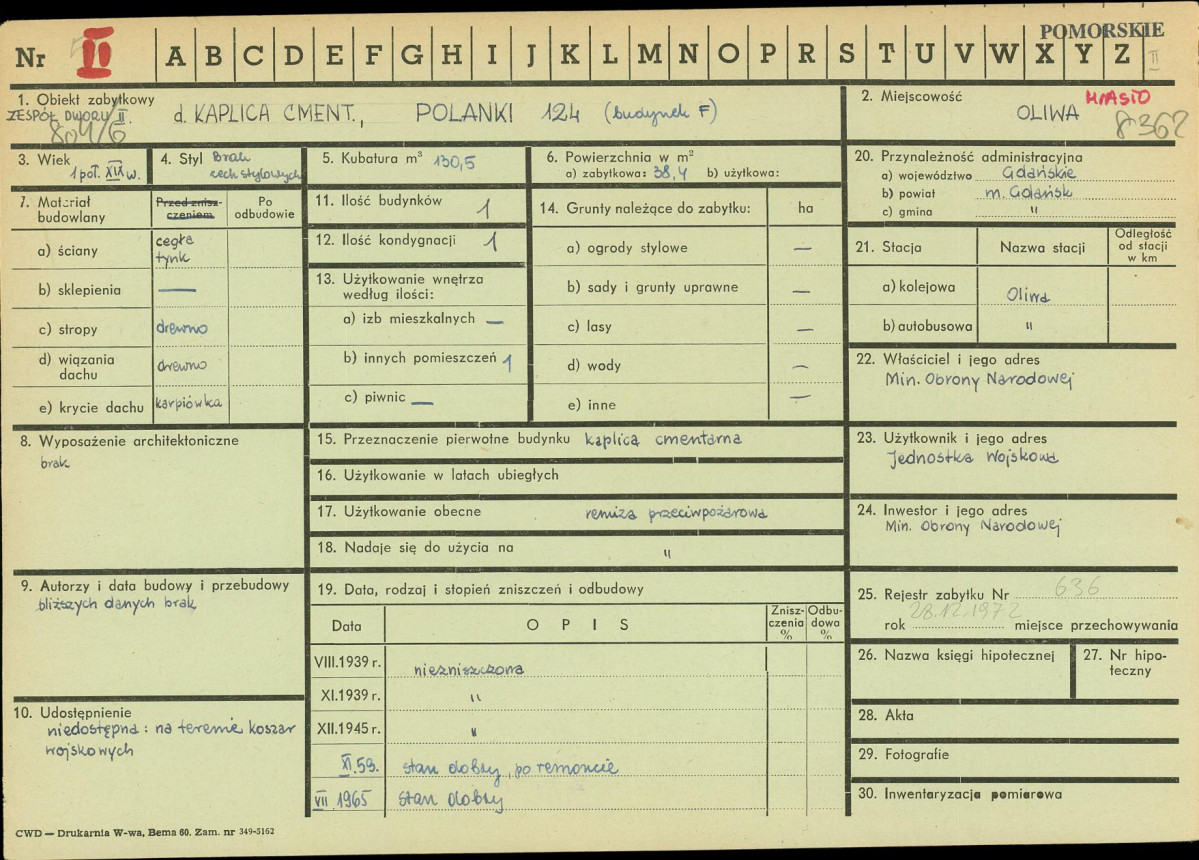 POMORSKIE
Nr II A B C D E F G H I J K L M N O P R S T U V W X Y Z II
1. Obiekt zabytkowy
ZESPÓŁ DWORU II.
d. KAPLICA CMENT., POLANKI 124 (budynek F)
804/6
2. Miejscowość
MIASTO
OLIWA
8362
3. Wiek
1 poł. XIX w.
4. Styl Brak
cech stylowych
5. Kubatura m³ 130,5
6. Powierzchnia w m²
a) zabytkowa: 38,4 b) użytkowa:
7. Materiał
budowlany
Przed znisz-
czeniem
Po
odbudowie
a) ściany
cegła
tynk
b) sklepienia —
c) stropy drewno
d) wiązania
dachu
drewno
e) krycie dachu karpiówka
11. Ilość budynków 1
12. Ilość kondygnacji 1
13. Użytkowanie wnętrza
według ilości:
a) izb mieszkalnych —
b) innych pomieszczeń 1
c) piwnic —
14. Grunty należące do zabytku: ha
a) ogrody stylowe —
b) sady i grunty uprawne —
c) lasy —
d) wody —
e) inne —
20. Przynależność administracyjna
a) województwo Gdańskie
b) powiat m. Gdańsk
c) gmina "
21. Stacja Nazwa stacji
Odległość
od stacji
w km
a) kolejowa Oliwa
b) autobusowa "
22. Właściciel i jego adres
Min. Obrony Narodowej
8. Wyposażenie architektoniczne
brak
15. Przeznaczenie pierwotne budynku kaplica cmentarna
16. Użytkowanie w latach ubiegłych
17. Użytkowanie obecne remiza przeciwpożarowa
18. Nadaje się do użycia na "
23. Użytkownik i jego adres
Jednostka Wojskowa
24. Inwestor i jego adres
Min. Obrony Narodowej
9. Autorzy i data budowy i przebudowy
bliższych danych brak
19. Data, rodzaj i stopień zniszczeń i odbudowy
Data OPIS
Znisz-
czenia
%
Odbu-
dowa
%
VIII.1939 r. niezniszczona
XI.1939 r. "
XII.1945 r. "
XI.59. stan dobry, po remoncie
VII 1965 stan dobry
25. Rejestr zabytku Nr 636
28.12.1972
rok miejsce przechowywania
26. Nazwa księgi hipotecznej
27. Nr hipo-
teczny
28. Akta
29. Fotografie
30. Inwentaryzacja pomiarowa
10. Udostępnienie
niedostępna: na terenie koszar
wojskowych
CWD — Drukarnia W-wa, Bema 60. Zam. nr 349-5162